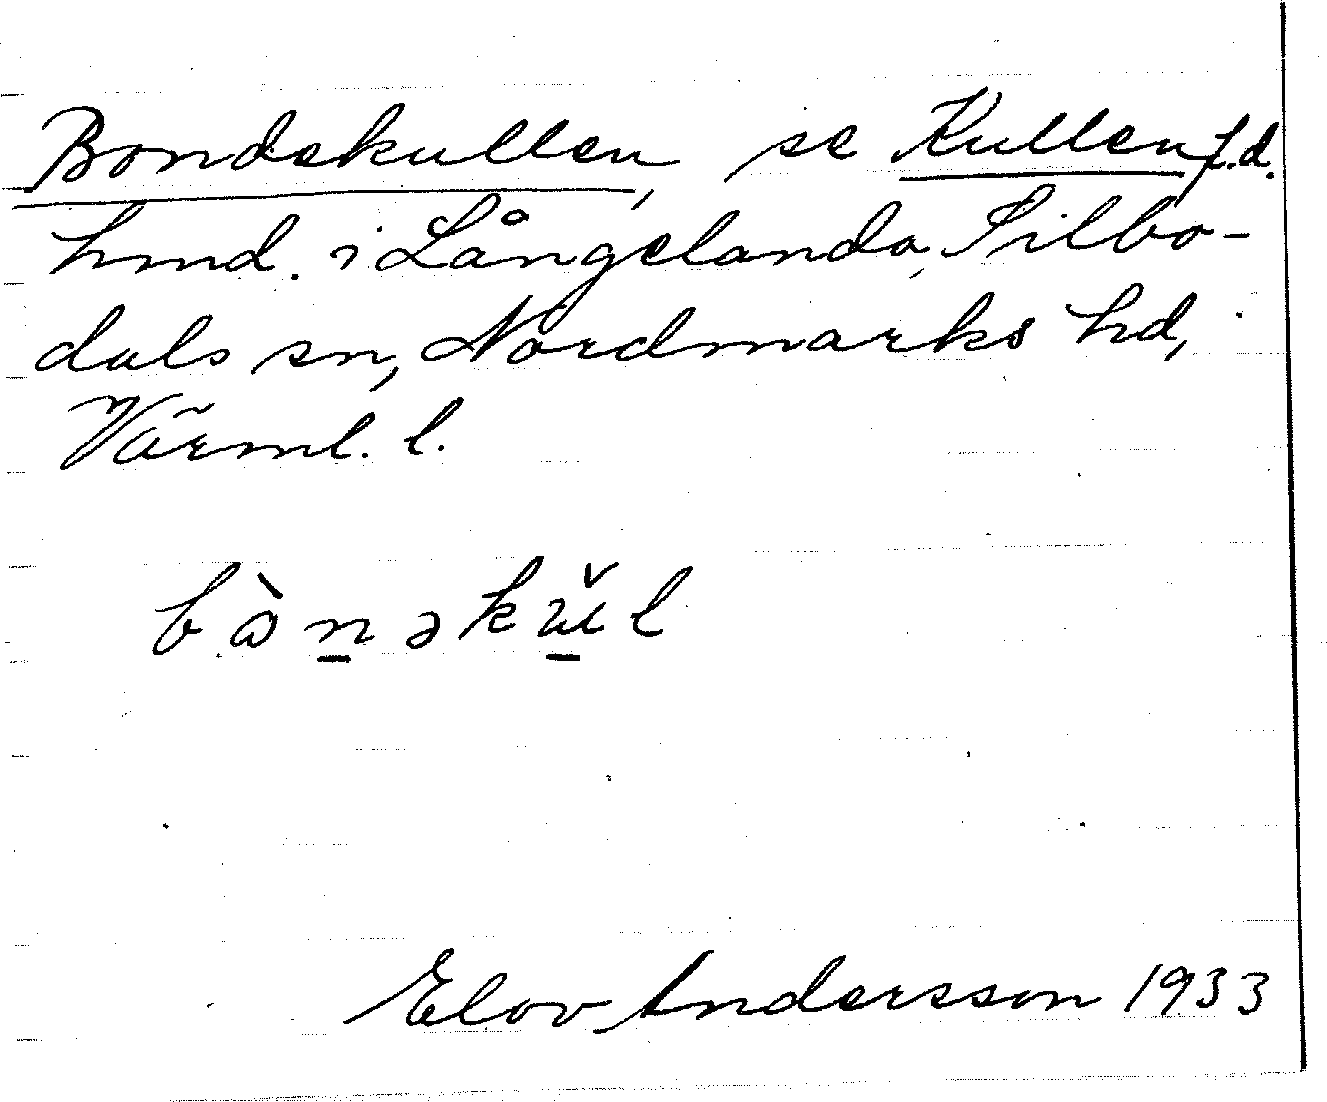 Bondekullen, se Kullen f.d.
hmd. i Långelanda, Silbo-
dals sn, Nordmarks hd,
Värml. l.
bònəkŭl
Elov Andersson 1933